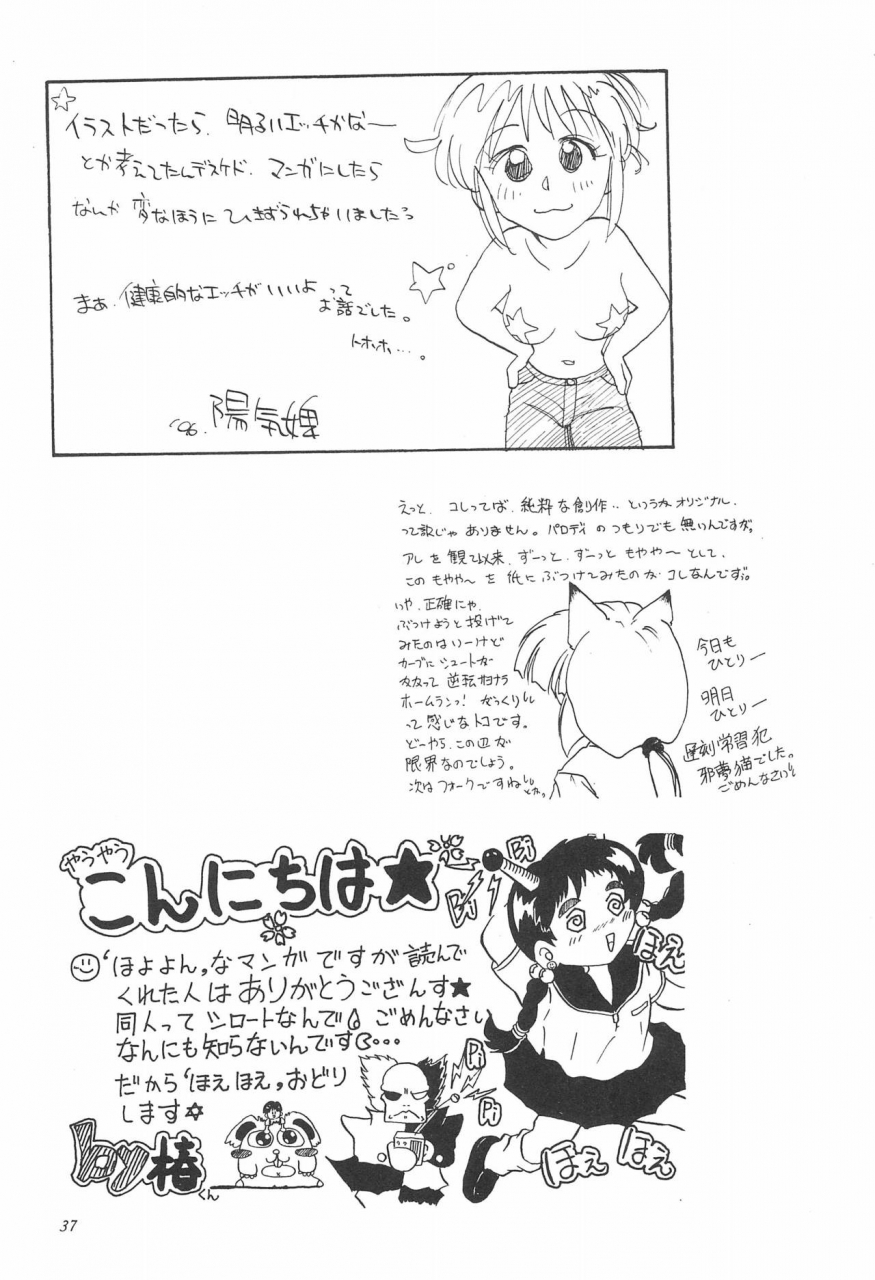 イラストだったら、明るいエッチかなー
とか考えてたんデスケド、マンガにしたら
なんか 変なほうに ひきずられちゃいましたっ
まぁ、健康的なエッチがいいよって
お話でした。
トホホ…。
'96. 陽気婢
えっと、コレってば、純粋な創作‥というかオリジナル、
って訳じゃありません。パロディのつもりでも無いんですが。
アレを観て以来、ずーっと、ずーっと もやや〜として、
このもやや〜を紙にぶつけてみたのがコレなんですぅ。
いや、正確にゃ、
ぶつけようと投げて
みたのはいーけど
カーブにシュートが
かかって 逆転サヨナラ
ホームランっ! がっくり
って感じなトコです。
どーやら、この辺が
限界なのでしょう。
次はフォークですね
とかっ
今日も
ひとりー
明日
ひとりー
遅刻学習犯
邪夢猫でした。
ごめんなさい
やうやう
こんにちは★
Bi
Bi
'ほよよん,なマンガですが読んで
くれた人はありがとうござんす★
同人ってシロートなんで ごめんなさい
なんにも知らないんです…
だから'ほえほえ,おどり
します☆
椿
くん
Pi
Pi
ほえ
ほえ ほえ
37